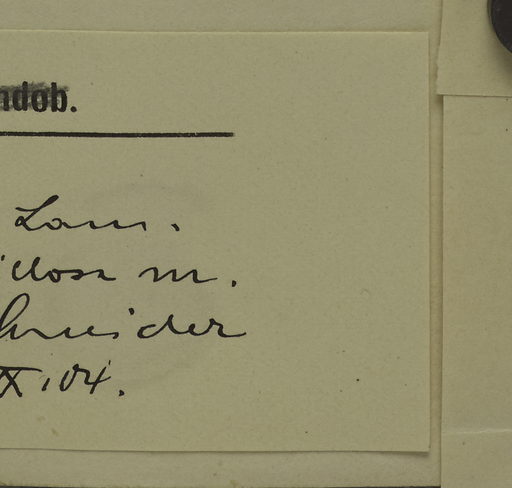 ndob.
Lam.
illosa m.
chneider
IX.04.